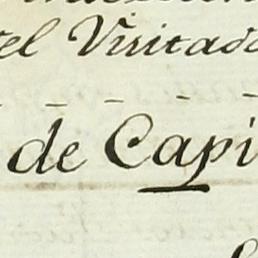 el Visitado
de Capi